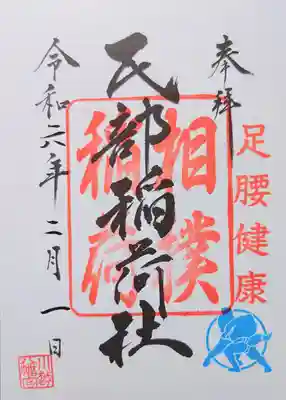 奉拝
足腰健康
民部稲荷社
相撲
稲荷
令和六年二月一日